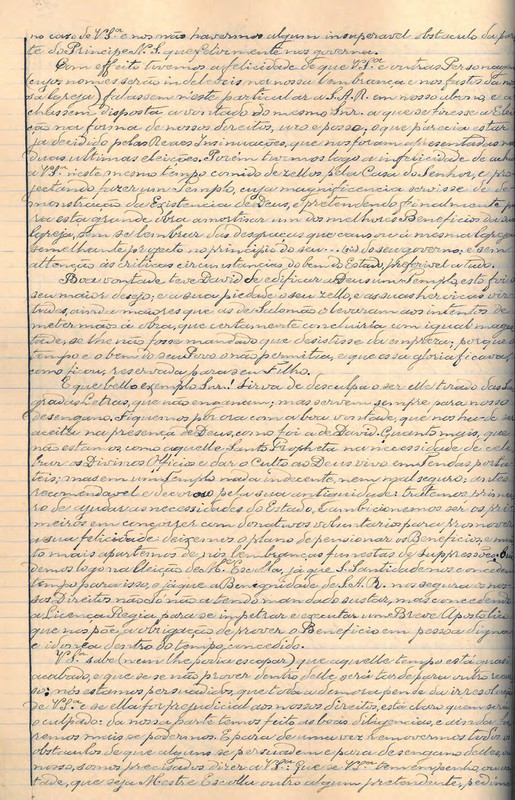 no caso de V.S.ª e nos não havermos algum insuperavel obstaculo da par
te do Principe N. S. que felizmente nos governa.
Com effeito tivemos a felicidade de que V.S.ª e outras Personagens
(cujos nomes serão indeleveis na nossa lembrança e nos fastos da nos
sa Igreja) falassem n'este particular a S.A.R. em nosso abono, e a
chassem disposta a vontade do mesmo Snr. a que se fizesse a Elei
ção na forma de nossos direitos, uso e posse, o que parecia estar
ja decidido pelas Reaes Insinuações, que nos foram apresentadas nas
duas ultimas eleições. Porem tivemos logo a infelicidade de
a V.S.ª neste mesmo tempo comido de zellos pela Casa do Senhor, e pro
jectando fazer um Templo, cuja magnificencia servisse de de
monstração da Existencia de Deus, e pretendendo finalmente pa
ra esta grande obra amortisar um dos melhores Beneficios da
Igreja, sem se lembrar das despezas que causou a mesma Igreja
semelhante projecto no principio do seu ... (sic) do seu governo; e sem
attenção ás criticas circunstancias do bem do Estado, preferivel a tudo.
Boa vontade teve David de edificar a Deus um Templo, esto foi o
seu maior desejo; e a sua piedade o seu zello, e as suas heroicas vir
tudes, ainda maiores que as de Salomão o levaram aos intentos de
meter mãos á obra, que certamente concluiria com igual mages
tade, se lhe não fosse mandado que desistisse da empreza; porque o
tempo e o bem do seu Povo o não permitia, e que essa gloria ficava,
como ficou, reservada para seu Filho.
E que bello exemplo Snr.! Sirva de desculpa o ser elle tirado das Sa
gradas Letras, que não enganem; mas servem sempre para nosso
desengano. Fiquemos por ora com a boa vontade, que nos ha-de ser
aceita na presença de Deus, como foi a de David. Quanto mais, que
não estamos, como aquelle Santo Propheta na necessidade de cele
brar os Divinos Officios e dar o Culto ao Deus vivo em Tendas porta
teis; mas em um Templo nada indecente, nem mal seguro; antes
recomendavel e decoroso pela sua antiguidade: tratemos primei
ro de ajudar as necessidades do Estado, e ambicionemos ser os pri
meiros em concorrer com donativos voluntarios para promover
a sua felicidade: deixemos o plano de pensionar os Beneficios, e mui
to mais apartemos de nós lembranças funestas de Suppressões. Cui
demos logo na Eleição de M.e Escolla, já que S. Santidade nos concedeu
tempo para isso, e já que a Benignidade de S.A.R. nos segura os nos
sos Direitos não só não a tendo mandado sustar, mas concedendo
a Licença Regia para se impetrar e executar um Breve Apostolico,
que nos põe a obrigação de prover o Beneficio em pessoa digna
e idonea dentro do tempo concedido.
V.S.ª sabe (nem lhe podia escapar) que aquelle tempo está quasi
acabado, e que se se não prover dentro delle será tarde para outro recur
so: nós estamos persuadidos, que toda a demora pende da irresolução
de V.S.ª e se ella for prejudicial aos nossos direitos, está claro quem será
o culpado: da nossa parte temos feito as boas diligencias, e ainda fa
remos mais se podermos. E para de uma vez removermos todos os
obstaculos de que alguns se persuadem e para desengano delles, e
nosso, somos precisados dizer a V.S.ª: Que se V.S.ª tem empenho, ou von
tade, que seja Mestre Escolla outro algum pretendente, pedimos